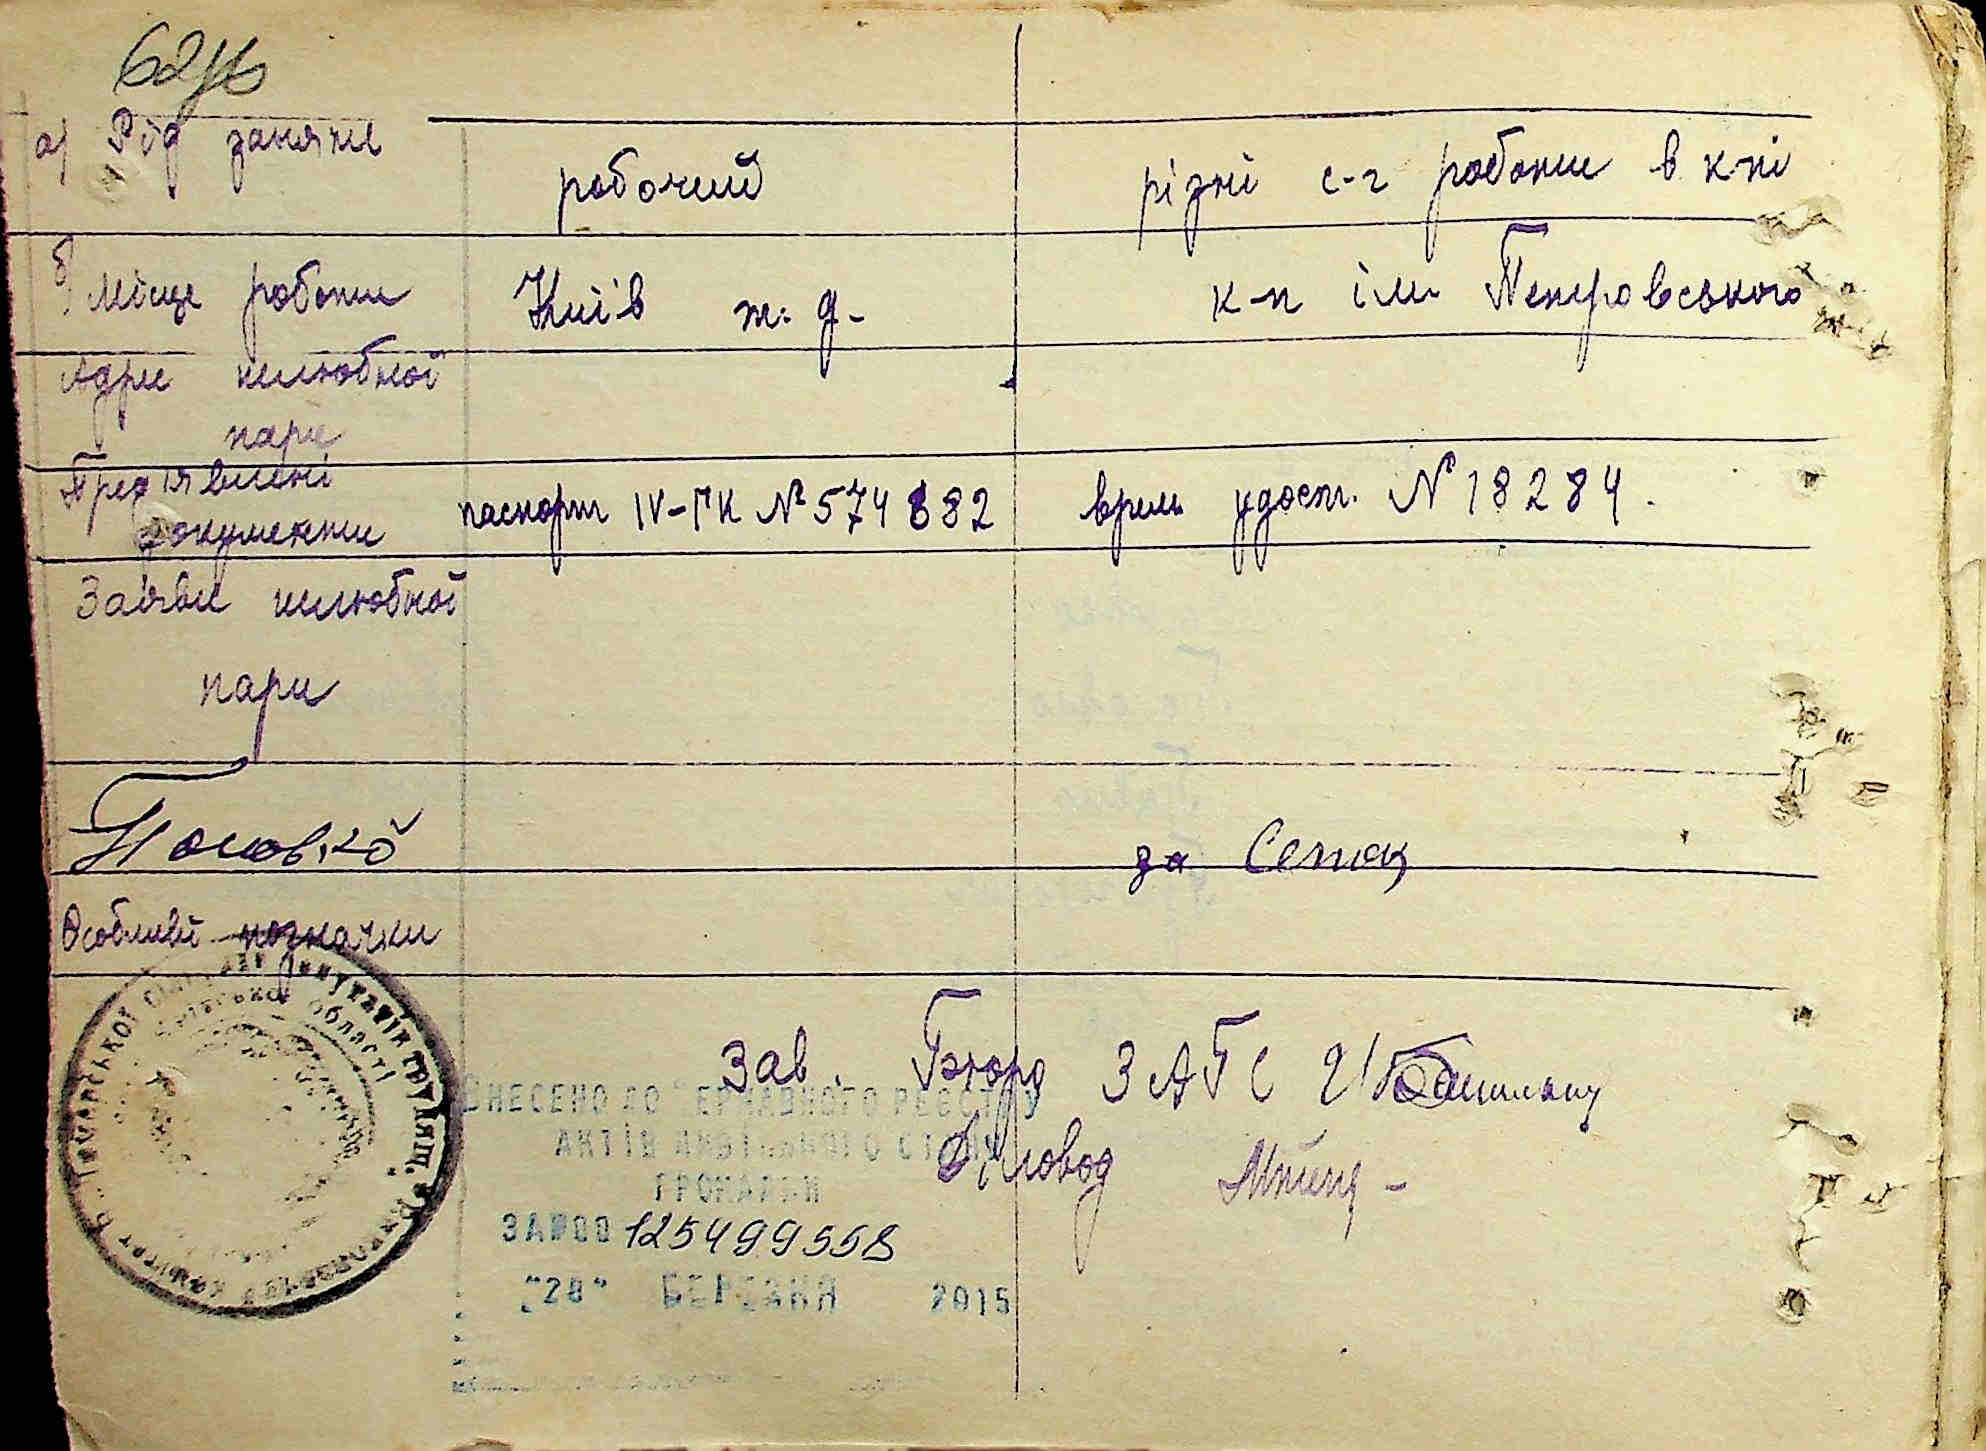 62
а) Рід заняття робочий різні с-г роботи в к-пі
б) місце роботи Київ ж. д. к-п ім Петровського
Адрес шлюбної
пари
Пред'явлені
документи паспорт IV-ГК № 574882 врем удост. № 18284.
Заяви шлюбної
пари
за
Особливі позначки
Зав. Бюро ЗАГС
Діловод
ВНЕСЕНО ДО ДЕРЖАВНОГО РЕЄСТРУ
АКТІВ ЦИВІЛЬНОГО СТАНУ
ГРОМАДЯН
ЗА №00125499558
"28" БЕРЕЗНЯ 2015
депутатів трудящ.
області